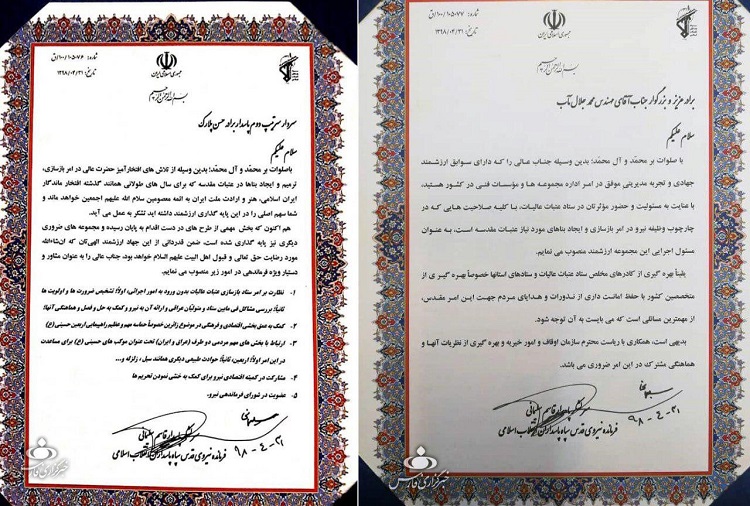 شماره: ۱۰۰/۱۰۵۰۷۶/ق
تاریخ: ۱۳۹۸/۰۴/۳۱
جمهوری اسلامی ایران
بسم الله الرحمن الرحیم
سردار سرتیپ دوم پاسدار برادر حسن پلارک
سلام علیکم
باصلوات بر محمّد و آل محمّد؛ بدین وسیله از تلاش های افتخارآمیز حضرت عالی در امر بازسازی،
ترمیم و ایجاد بناها در عتبات مقدسه که برای سال های طولانی همانند گذشته افتخار ماندگار
ایران اسلامی، هنر و ارادت ملت ایران به ائمه معصومین سلام الله علیهم اجمعین خواهد ماند و
شما سهم اصلی را در این پایه گذاری ارزشمند داشته اید تشکر به عمل می آید.
هم اکنون که بخش مهمی از طرح های در دست اقدام به پایان رسیده و مجموعه های ضروری
دیگری نیز پایه گذاری شده است. ضمن قدردانی از این جهاد ارزشمند الهی‌تان که ان‌شاءالله
مورد رضایت حق تعالی و قبول اهل البیت علیهم السلام خواهد بود، جناب عالی را به عنوان مشاور و
دستیار ویژه فرماندهی در امور زیر منصوب می نمایم.
۱- نظارت بر امر ستاد بازسازی عتبات عالیات بدون ورود به امور اجرایی، اولاً؛ تشخیص ضرورت ها و اولویت ها
ثانیاً؛ بررسی مشکلات فی مابین ستاد و متولیّان عراقی و ارائه آن به نیرو و کمک به حل و فصل و هماهنگی آنها؛
۲- کمک به عمق بخشی اقتصادی و فرهنگی در موضوع زائرین خصوصاً حماسه مهم و عظیم راهپیمایی اربعین حسینی (ع)
۳- ارتباط با بخش های مهم مردمی دو طرف (عراق و ایران) تحت عنوان موکب های حسینی (ع) برای مساعدت
در این امر اولاً؛ اربعین، ثانیاً؛ حوادث طبیعی دیگری همانند سیل، زلزله و...
۴- مشارکت در کمیته اقتصادی نیرو برای کمک به خنثی نمودن تحریم ها
۵- عضویت در شورای فرماندهی نیرو.
سرلشکر پاسدار قاسم سلیمانی
فرمانده نیروی قدس سپاه پاسداران انقلاب اسلامی
۹۸-۴-۳۱
خبرگزاری فارس
شماره: ۱۰۰/۱۰۵۰۷۷/ق
تاریخ: ۱۳۹۸/۰۴/۳۱
جمهوری اسلامی ایران
بسم الله الرحمن الرحیم
برادر عزیز و بزرگوار جناب آقای مهندس محمد جلال مآب
سلام علیکم
با صلوات بر محمّد و آل محمّد؛ بدین وسیله جناب عالی را که دارای سوابق ارزشمند
جهادی و تجربه مدیریتی موفق در امر اداره مجموعه ها و مؤسسات فنی در کشور هستید،
با عنایت به مسئولیت و حضور مؤثرتان در ستاد عتبات عالیات، با کلیه صلاحیت هایی که در
چارچوب وظیفه نیرو در امر بازسازی و ایجاد بناهای مورد نیاز عتبات مقدسه است، به عنوان
مسئول اجرایی این مجموعه ارزشمند منصوب می نمایم.
یقیناً بهره گیری از کادرهای مخلص ستاد عتبات عالیات و ستادهای استانها خصوصاً بهره گیری از
متخصصین کشور با حفظ امانت داری از نذورات و هدایای مردم جهت این امر مقدس،
از مهمترین مسائلی است که می بایست به آن توجه شود.
بدیهی است، همکاری با ریاست محترم سازمان اوقاف و امور خیریه و بهره گیری از نظریات آنها و
هماهنگی مشترک در این امر ضروری می باشد.
سرلشکر پاسدار قاسم سلیمانی
فرمانده نیروی قدس سپاه پاسداران انقلاب اسلامی
۹۸-۴-۳۱
خبرگزاری فارس